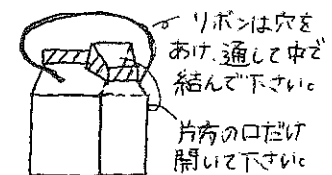 リボンは穴を
あけ、通して中で
結んで下さい。
片方の口だけ
開いて下さい。